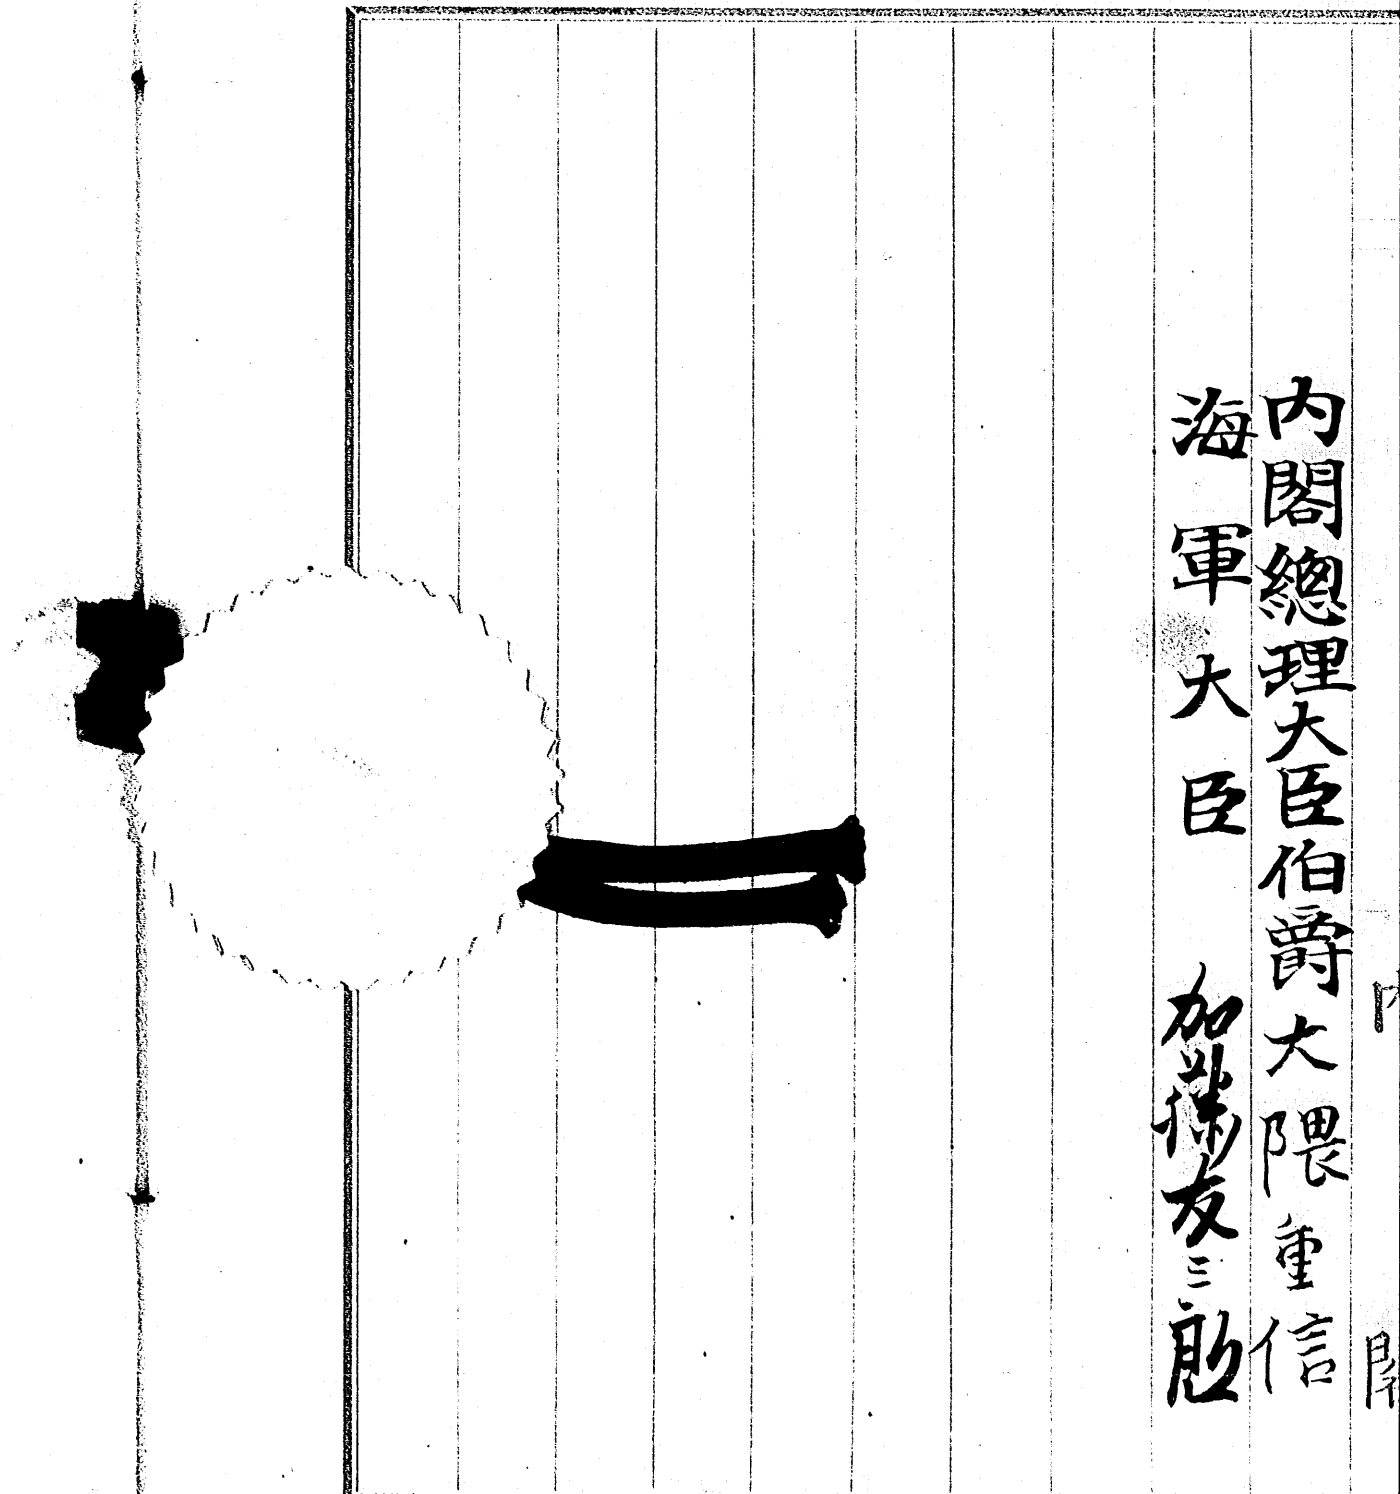 内閣總理大臣伯爵大隈重信
海軍大臣 加藤友三郎